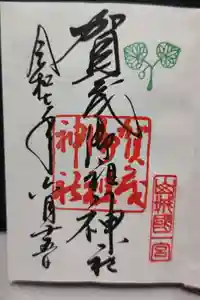 山城國一宮
賀茂御祖神社
賀茂
御祖
神社
令和七年六月十五日